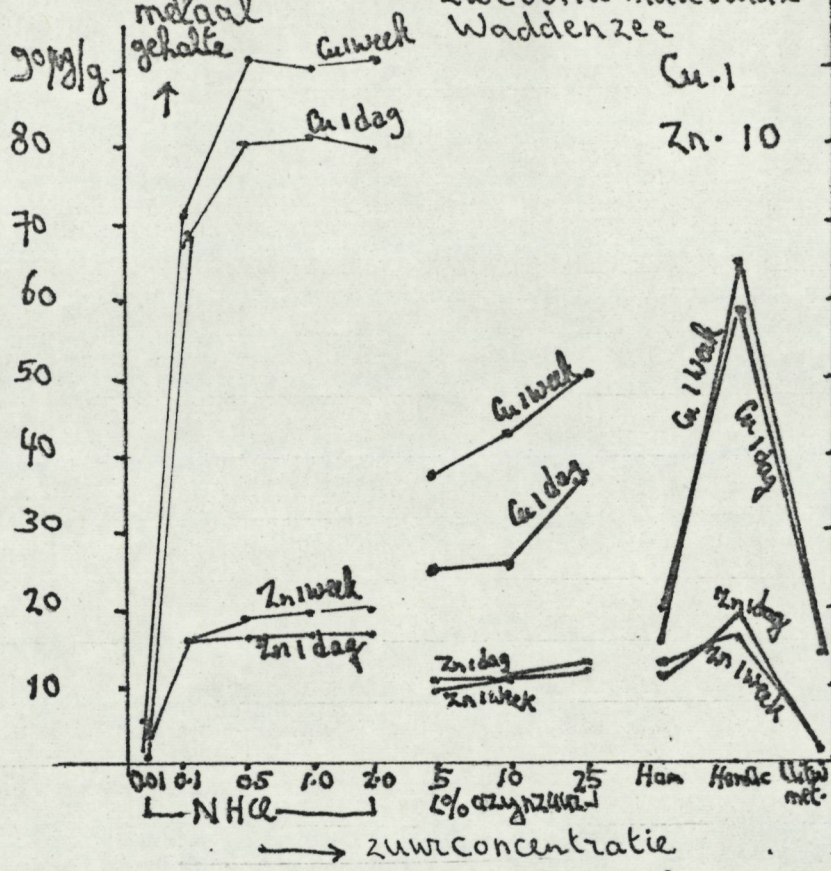 metaal
gehalte
Waddenzee
Cu · 1
Zn · 10
90 µg/g
80
70
60
50
40
30
20
10
Cu 1 week
Cu 1 dag
Zn 1 week
Zn 1 dag
Cu 1 week
Cu 1 dag
Zn 1 dag
Zn 1 week
Cu 1 week
Cu 1 dag
Zn 1 dag
Zn 1 week
0.01 0.1 0.5 1.0 2.0 5 10 25 Ham
N HCl % azijnzuur
zuurconcentratie